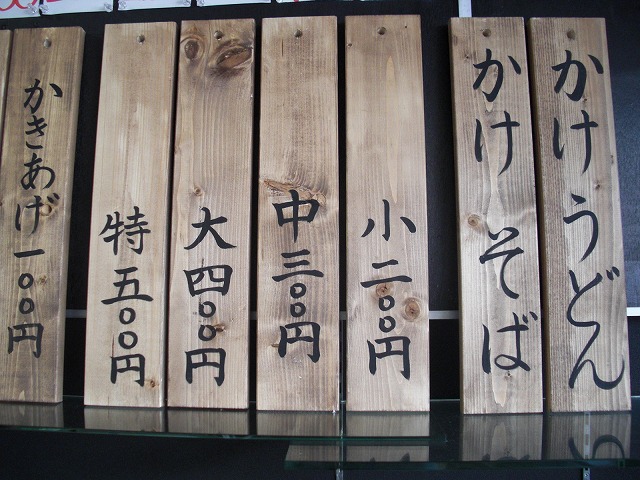 かけうどん
かけそば
小二〇〇円
中三〇〇円
大四〇〇円
特五〇〇円
かきあげ一〇〇円